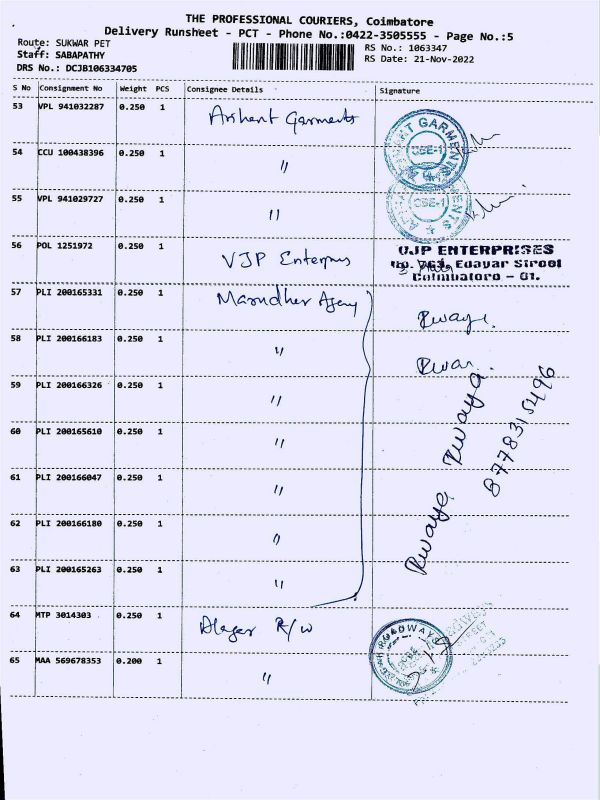 THE PROFESSIONAL COURIERS, Coimbatore
Delivery Runsheet - PCT - Phone No.:0422-3505555 - Page No.:5
Route: SUKWAR PET
RS No.: 1063347
Staff: SABAPATHY
RS Date: 21-Nov-2022
DRS No.: DCJB106334705
S No Consignment No Weight PCS Consignee Details Signature
53 VPL 941032287 0.250 1 Arihant Garments
54 CCU 100438396 0.250 1 "
55 VPL 941029727 0.250 1 "
56 POL 1251972 0.250 1 VJP Enterprises
VJP ENTERPRISES
Edayar Street
Coimbatore - 01.
57 PLI 200165331 0.250 1 Marudher Agency
58 PLI 200166183 0.250 1 "
59 PLI 200166326 0.250 1 "
60 PLI 200165610 0.250 1 "
61 PLI 200166047 0.250 1 "
62 PLI 200166180 0.250 1 "
63 PLI 200165263 0.250 1 "
8778315496
64 MTP 3014303 0.250 1 Alagar R/W
65 MAA 569678353 0.200 1 "
GARMENTS
CBE-1
GARMENTS
CBE-1
ROADWAYS